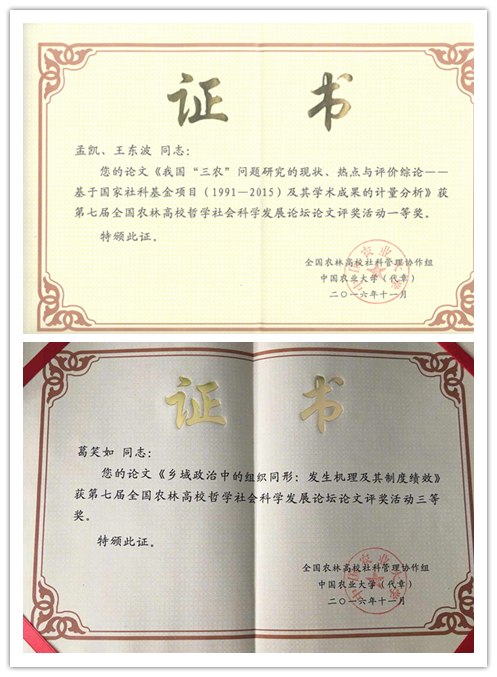 证 书
孟凯、王东波 同志：
您的论文《我国“三农”问题研究的现状、热点与评价综论——
基于国家社科基金项目（1991—2015）及其学术成果的计量分析》获
第七届全国农林高校哲学社会科学发展论坛论文评奖活动一等奖。
特颁此证。
全国农林高校社科管理协作组
中国农业大学（代章）
二〇一六年十一月
证 书
葛笑如 同志：
您的论文《乡域政治中的组织同形：发生机理及其制度绩效》
获第七届全国农林高校哲学社会科学发展论坛论文评奖活动三等
奖。
特颁此证。
全国农林高校社科管理协作组
中国农业大学（代章）
二〇一六年十一月